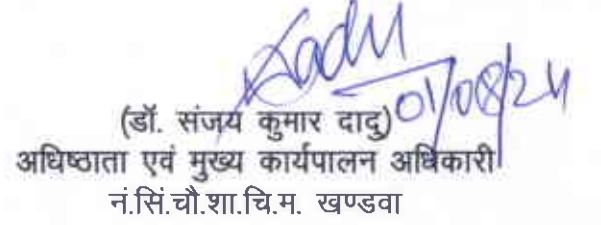 01/08/24
(डॉ. संजय कुमार दादु)
अधिष्ठाता एवं मुख्य कार्यपालन अधिकारी
नं.सिं.चौ.शा.चि.म. खण्डवा